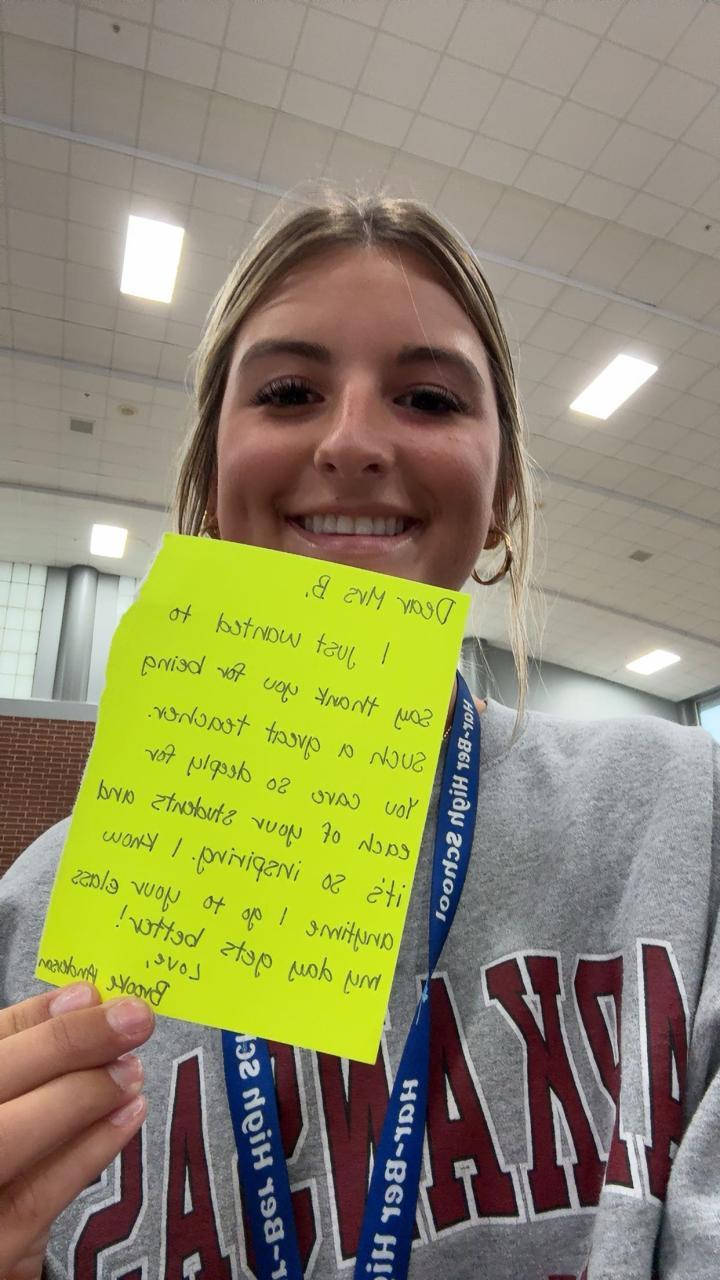 Dear Mrs B,
I just wanted to
say thank you for being
such a great teacher.
You care so deeply for
each of your students and
it's so inspiring. I know
anytime I go to your class
my day gets better!
Love,
Brooke Anderson
Har-Ber High School
Har-Ber Hig
r-Ber High Sch
ARKANSAS